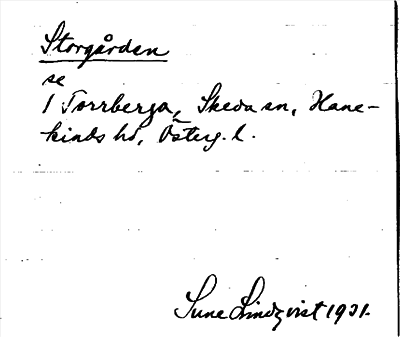 Storgården
se
1 Torrberga, Skeda sn, Hane-
kinds hd, Österg. l.
Sune Lindqvist 1931.